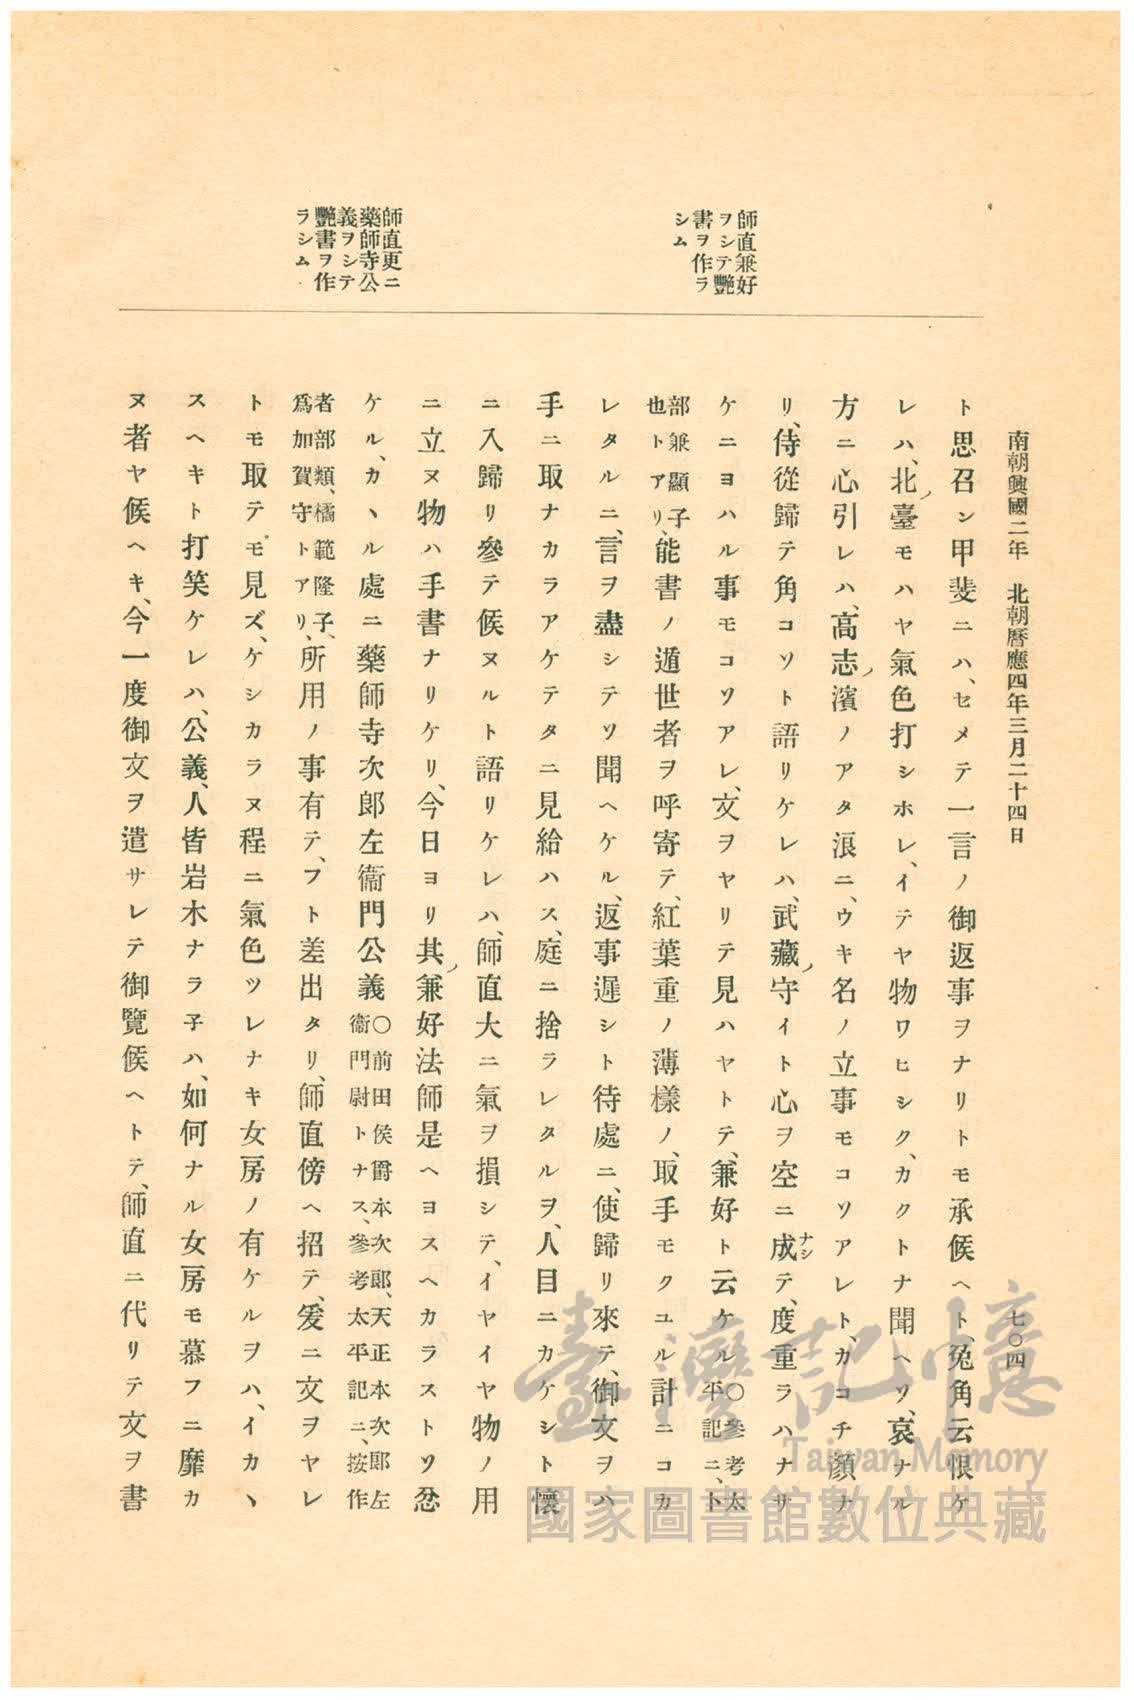 南朝興國二年 北朝曆應四年三月二十四日 七〇四
師直兼好
ヲシテ艷
書ヲ作ラ
シム
師直更ニ
藥師寺公
義ヲシテ
艷書ヲ作
ラシム
ト思召ン甲斐ニハ、セメテ一言ノ御返事ヲナリトモ承候ヘト、兔角云恨ケ
レハ、北ノ臺モハヤ氣色打シホレ、イテヤ物ワヒシク、カクトナ聞ヘソ、哀ナル
方ニ心引レハ、高志ノ濱ノアタ浪ニ、ウキ名ノ立事モコソアレト、カコチ顏ナ
リ、侍從歸テ角コソト語リケレハ、武藏ノ守イト心ヲ空ニ成ナシテ、度重ラハナサ
ケニヨハル事モコソアレ、文ヲヤリテ見ハヤトテ、兼好ト云ケル〇參考太平記ニ、卜
部兼顯子也トアリ、能書ノ遁世者ヲ呼寄テ、紅葉重ノ薄樣ノ、取手モクユル計ニコカ
レタルニ、言ヲ盡シテソ聞ヘケル、返事遲シト待處ニ、使歸リ來テ、御文ヲハ
手ニ取ナカラアケテタニ見給ハス、庭ニ捨ラレタルヲ、人目ニカケシト懷
ニ入歸リ參テ候ヌルト語リケレハ、師直大ニ氣ヲ損シテ、イヤイヤ物ノ用
ニ立ヌ物ハ手書ナリケリ、今日ヨリ其ノ兼好法師是ヘヨスヘカラストソ忿
ケル、カヽル處ニ藥師寺次郎左衞門公義〇前田侯爵本次郞、天正本次郞左衞門尉トナス、參考太平記ニ、按作
者部類、橘範隆子、爲加賀守トアリ、所用ノ事有テ、フト差出タリ、師直傍ヘ招テ、爰ニ文ヲヤレ
トモ取テモ見ズ、ケシカラヌ程ニ氣色ツレナキ女房ノ有ケルヲハ、イカヽ
スヘキト打笑ケレハ、公義、人皆岩木ナラ子ハ、如何ナル女房モ慕フニ靡カ
ヌ者ヤ候ヘキ、今一度御文ヲ遣サレテ御覽候ヘトテ、師直ニ代リテ文ヲ書
臺灣記憶
Taiwan Memory
國家圖書館數位典藏